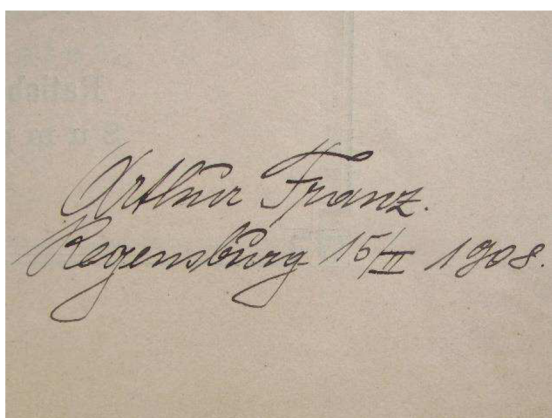 Arthur Franz.
Regensburg 15/II 1908.